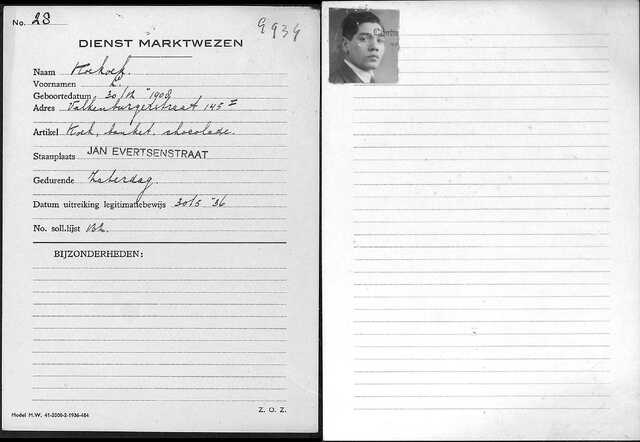 No. 28
9934
DIENST MARKTWEZEN
Naam Koekoek.
Voornamen L.
Geboortedatum 30/12 '1908
Adres Valkenburgerstraat 145 I
Artikel Koek, banket, chocolade.
Staanplaats JAN EVERTSENSTRAAT
Gedurende Zaterdag.
Datum uitreiking legitimatiebewijs 30/5 '36
No. soll.lijst
BIJZONDERHEDEN:
Model M.W. 41-2000-2-1936-484
Z. O. Z.